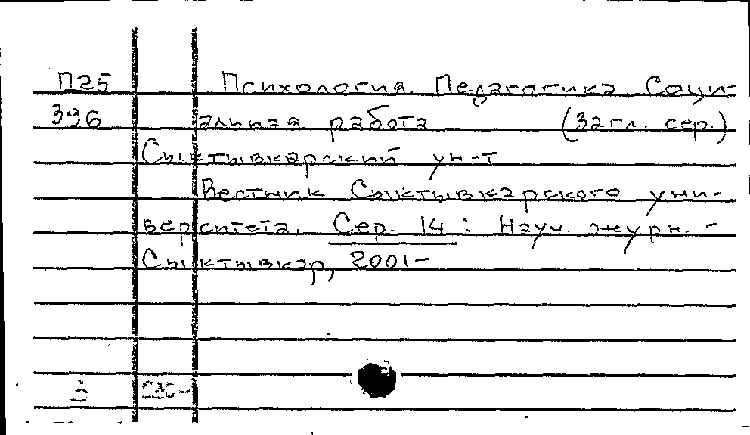 П25 Психология. Педагогика. Соци-
396 альная работа (Загл. сер.)
Сыктывкарский ун-т
Вестник Сыктывкарского уни-
верситета. Сер. 14 : Науч. журн. -
Сыктывкар, 2001-